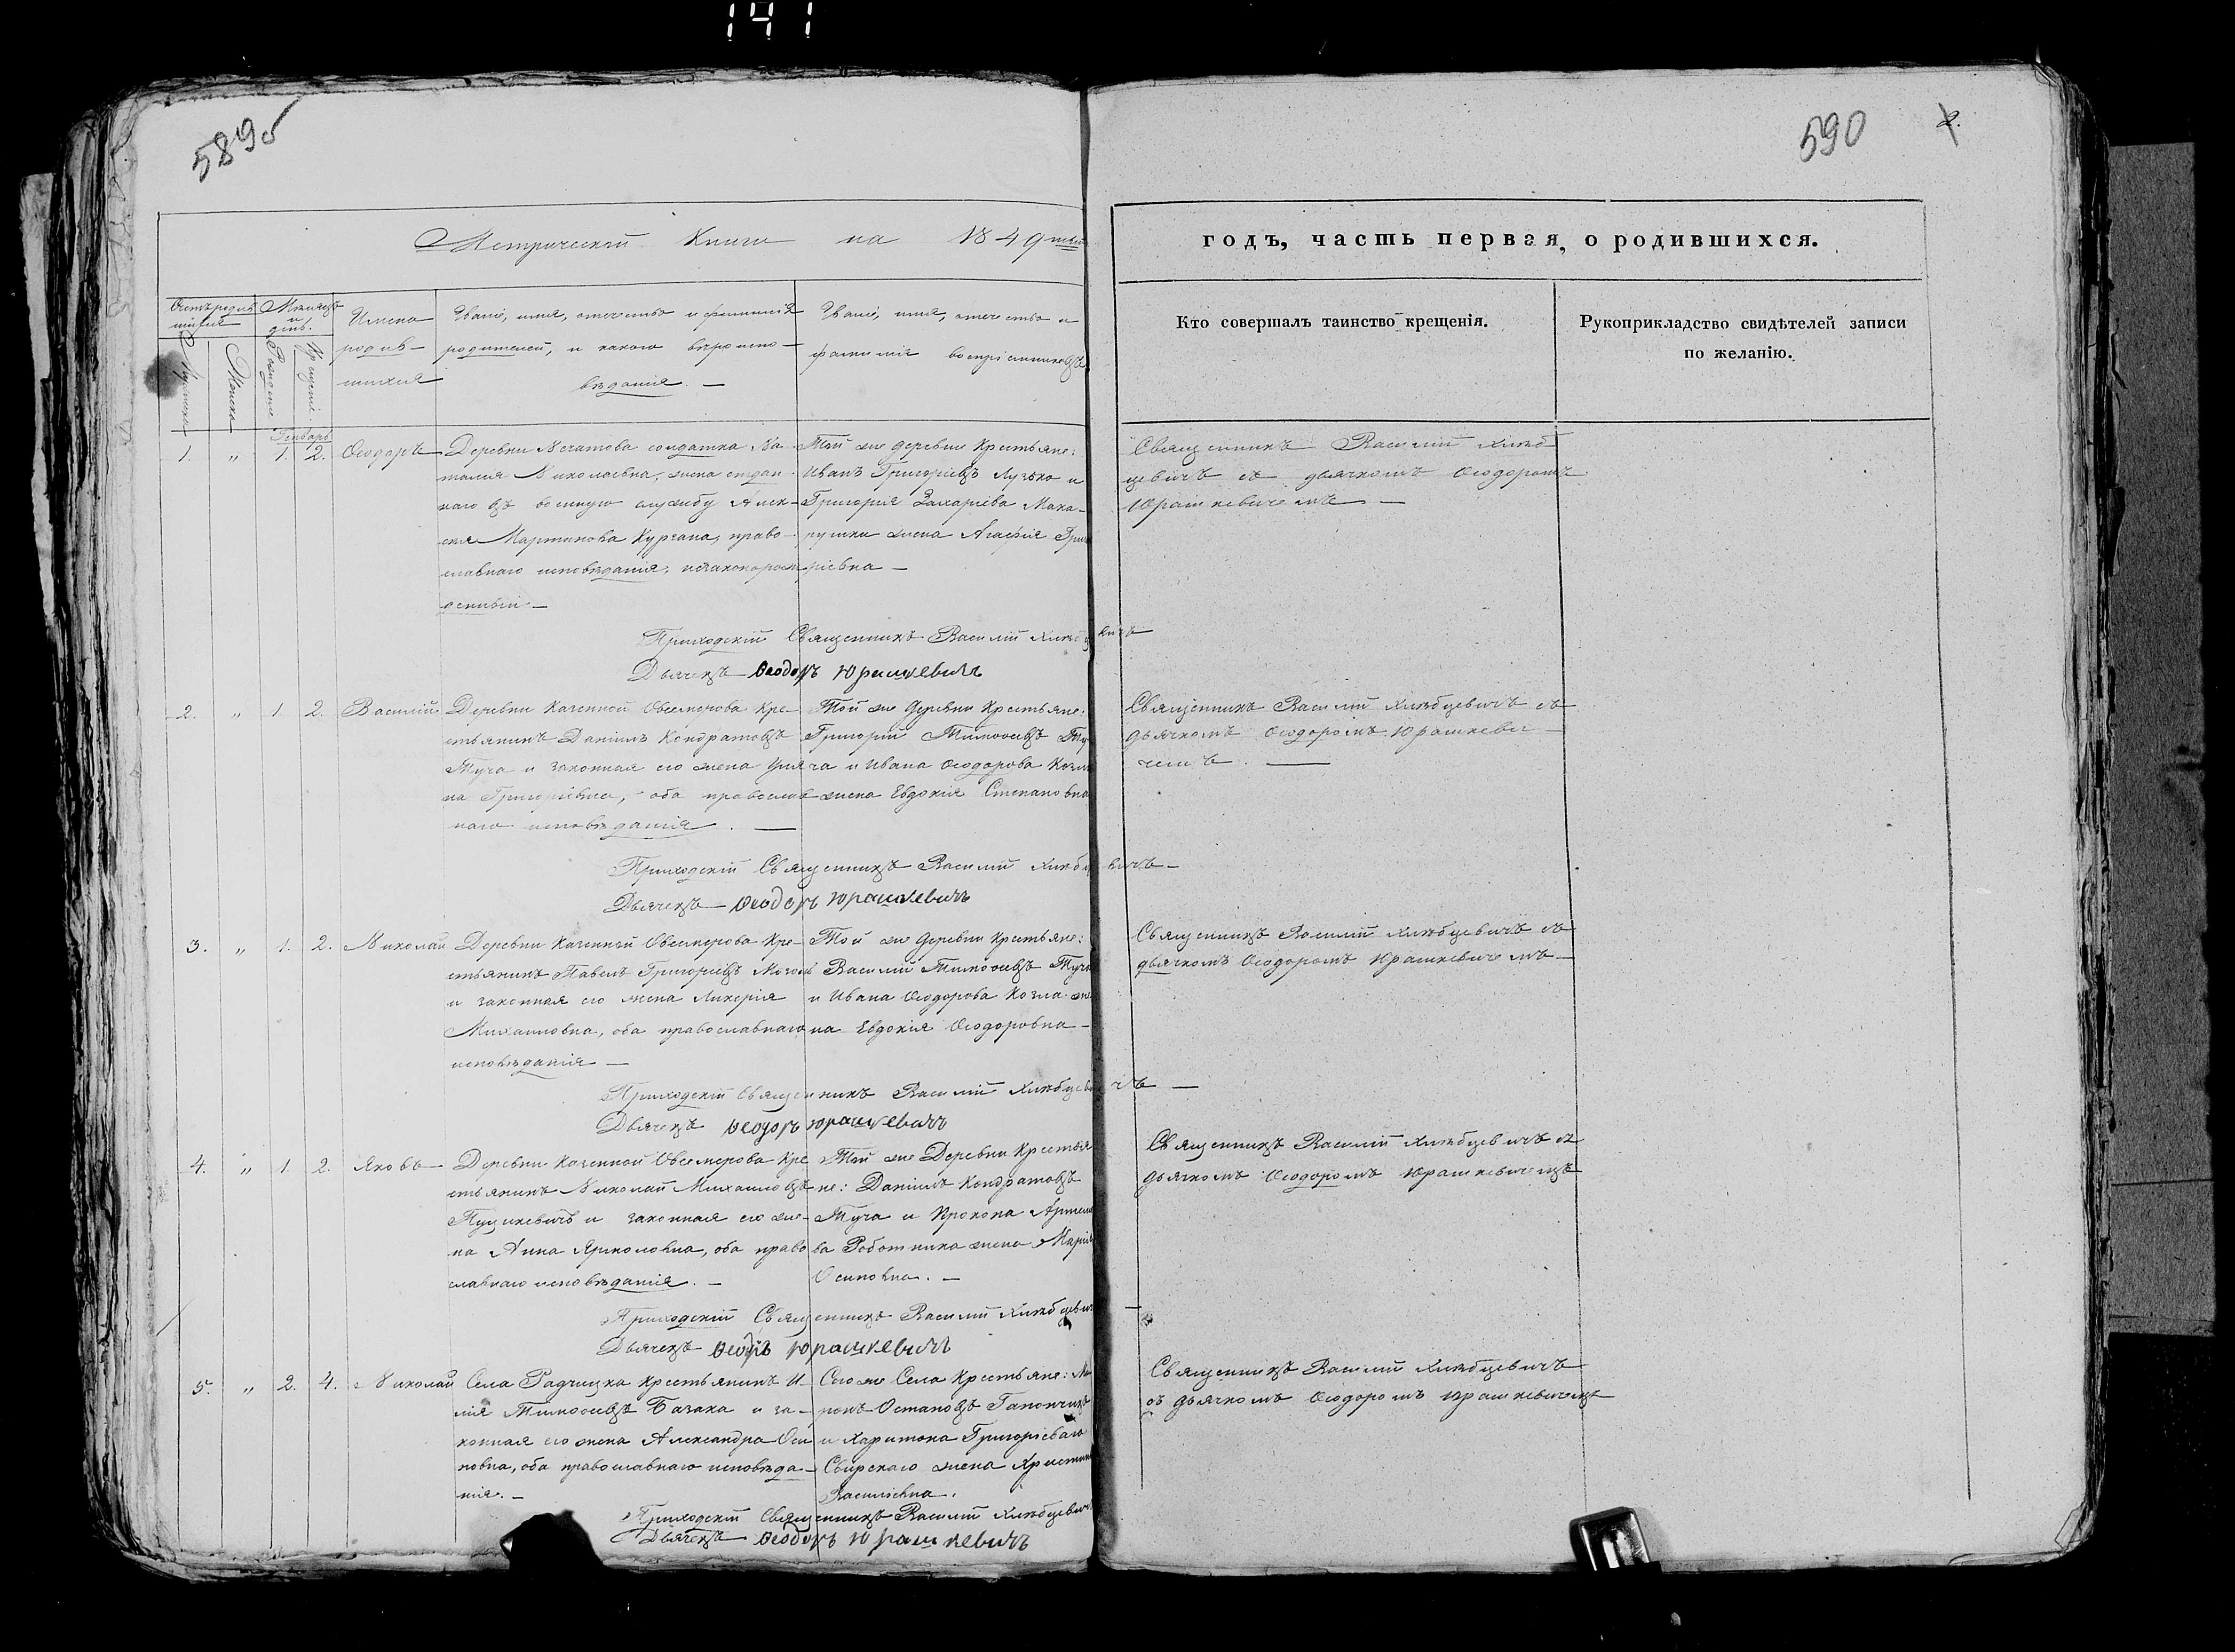 141
589об
590
2.
Метрической Книги на 1849тый
годъ, часть первая, о родившихся.
Счетъ родив-
шихся
Мѣсяцъ
и
день.
Мужеска
Женска
Рожденія
Крещенія
Имена
родив-
шихся
Званіе, имя, отечество и фамилія
родителей, и какого вѣроиспо-
вѣданія. —
Званіе, имя, отечество и
фамилія воспріемниковъ
Кто совершалъ таинство крещенія.
Рукоприкладство свидѣтелей записи
по желанію.
Генварь
1. „ 1. 2. Ѳеодоръ
Деревни солдатка На-
талія Николаевна, жена отдан-
наго въ военную службу Алек-
сѣя Мартинова Кургана, право-
славнаго исповѣданія, незаконорож
денный —
Той же деревни Крестьяне:
Иванъ Григоріевъ Лузько и
Григорія Захаріева Мака-
рушки жена Агафія Григо
ріевна —
Священникъ Василій Хлѣб
цевичъ съ дьячкомъ Ѳеодоромъ
Юрашкевичемъ —
Приходскій Священникъ Василій Хлѣбцевичъ
Дьячекъ Ѳеодоръ Юрашкевичъ
2. „ 1. 2. Василій
Деревни Каченной Овсемерова Кре-
стьянинъ Даніилъ Кондратовъ
Туча и законная его жена Улья
на Григоріевна, оба православ
наго исповѣданія. —
Той же Деревни Крестьяне:
Григорій Тимоѳеевъ Ту
ча и Ивана Ѳеодорова Козла
жена Евдокія Степановна
Священникъ Василій Хлѣбцевичъ съ
дьячкомъ Ѳеодоромъ Юрашкеви-
чемъ. —
Приходскій Священникъ Василій Хлѣбцевичъ —
Дьячекъ Ѳеодоръ Юрашкевичъ
3. „ 1. 2. Николай
Деревни Каченной Овсемерова Кре-
стьянинъ Павелъ Григоріевъ
и законная его жена Ликерія
Михаиловна, оба православнаго
исповѣданія —
Той же Деревни Крестьяне:
Василій Тимоѳеевъ Туча
и Ивана Ѳеодорова Козла же
на Евдокія Ѳеодоровна —
Священникъ Василій Хлѣбцевичъ съ
дьячкомъ Ѳеодоромъ Юрашкевичемъ —
Приходскій Священникъ Василій Хлѣбцевичъ —
Дьячекъ Ѳеодоръ Юрашкевичъ
4. „ 1. 2. Яковъ
Деревни Каченной Овсемерова Кре
стьянинъ Николай Михаиловъ
Пушкевичъ и законная его же-
на Анна Ярмоловна, оба право
славнаго исповѣданія. —
Той же Деревни Крестья
не: Даніилъ Кондратовъ
Туча и Прокопа Артемо
ва Роботника жена Марія
Осиповна. —
Священникъ Василій Хлѣбцевичъ съ
дьячкомъ Ѳеодоромъ Юрашкевичемъ
Приходскій Священникъ Василій Хлѣбцевичъ —
Дьячекъ Ѳеодръ Юрашкевичъ
5. „ 2. 4. Николай
Села Радчицка Крестьянинъ И-
лія Тимоѳеевъ Базака и за-
конная его жена Александра Оси
повна, оба православнаго исповѣда-
нія. —
Сего же Села Крестьяне: Ми
ронъ Остаповъ Гапончикъ
и Харитона Григоріеваго
Свирскаго жена Христина
Василіевна.
Священникъ Василій Хлѣбцевичъ
съ дьячкомъ Ѳеодоромъ Юрашкевичемъ
Приходскій Священникъ Василій Хлѣбцевичъ
Дьячекъ Ѳеодоръ Юрашкевичъ